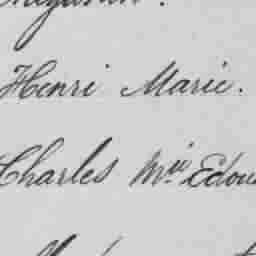 Henri Marie.
Charles Mie Edou